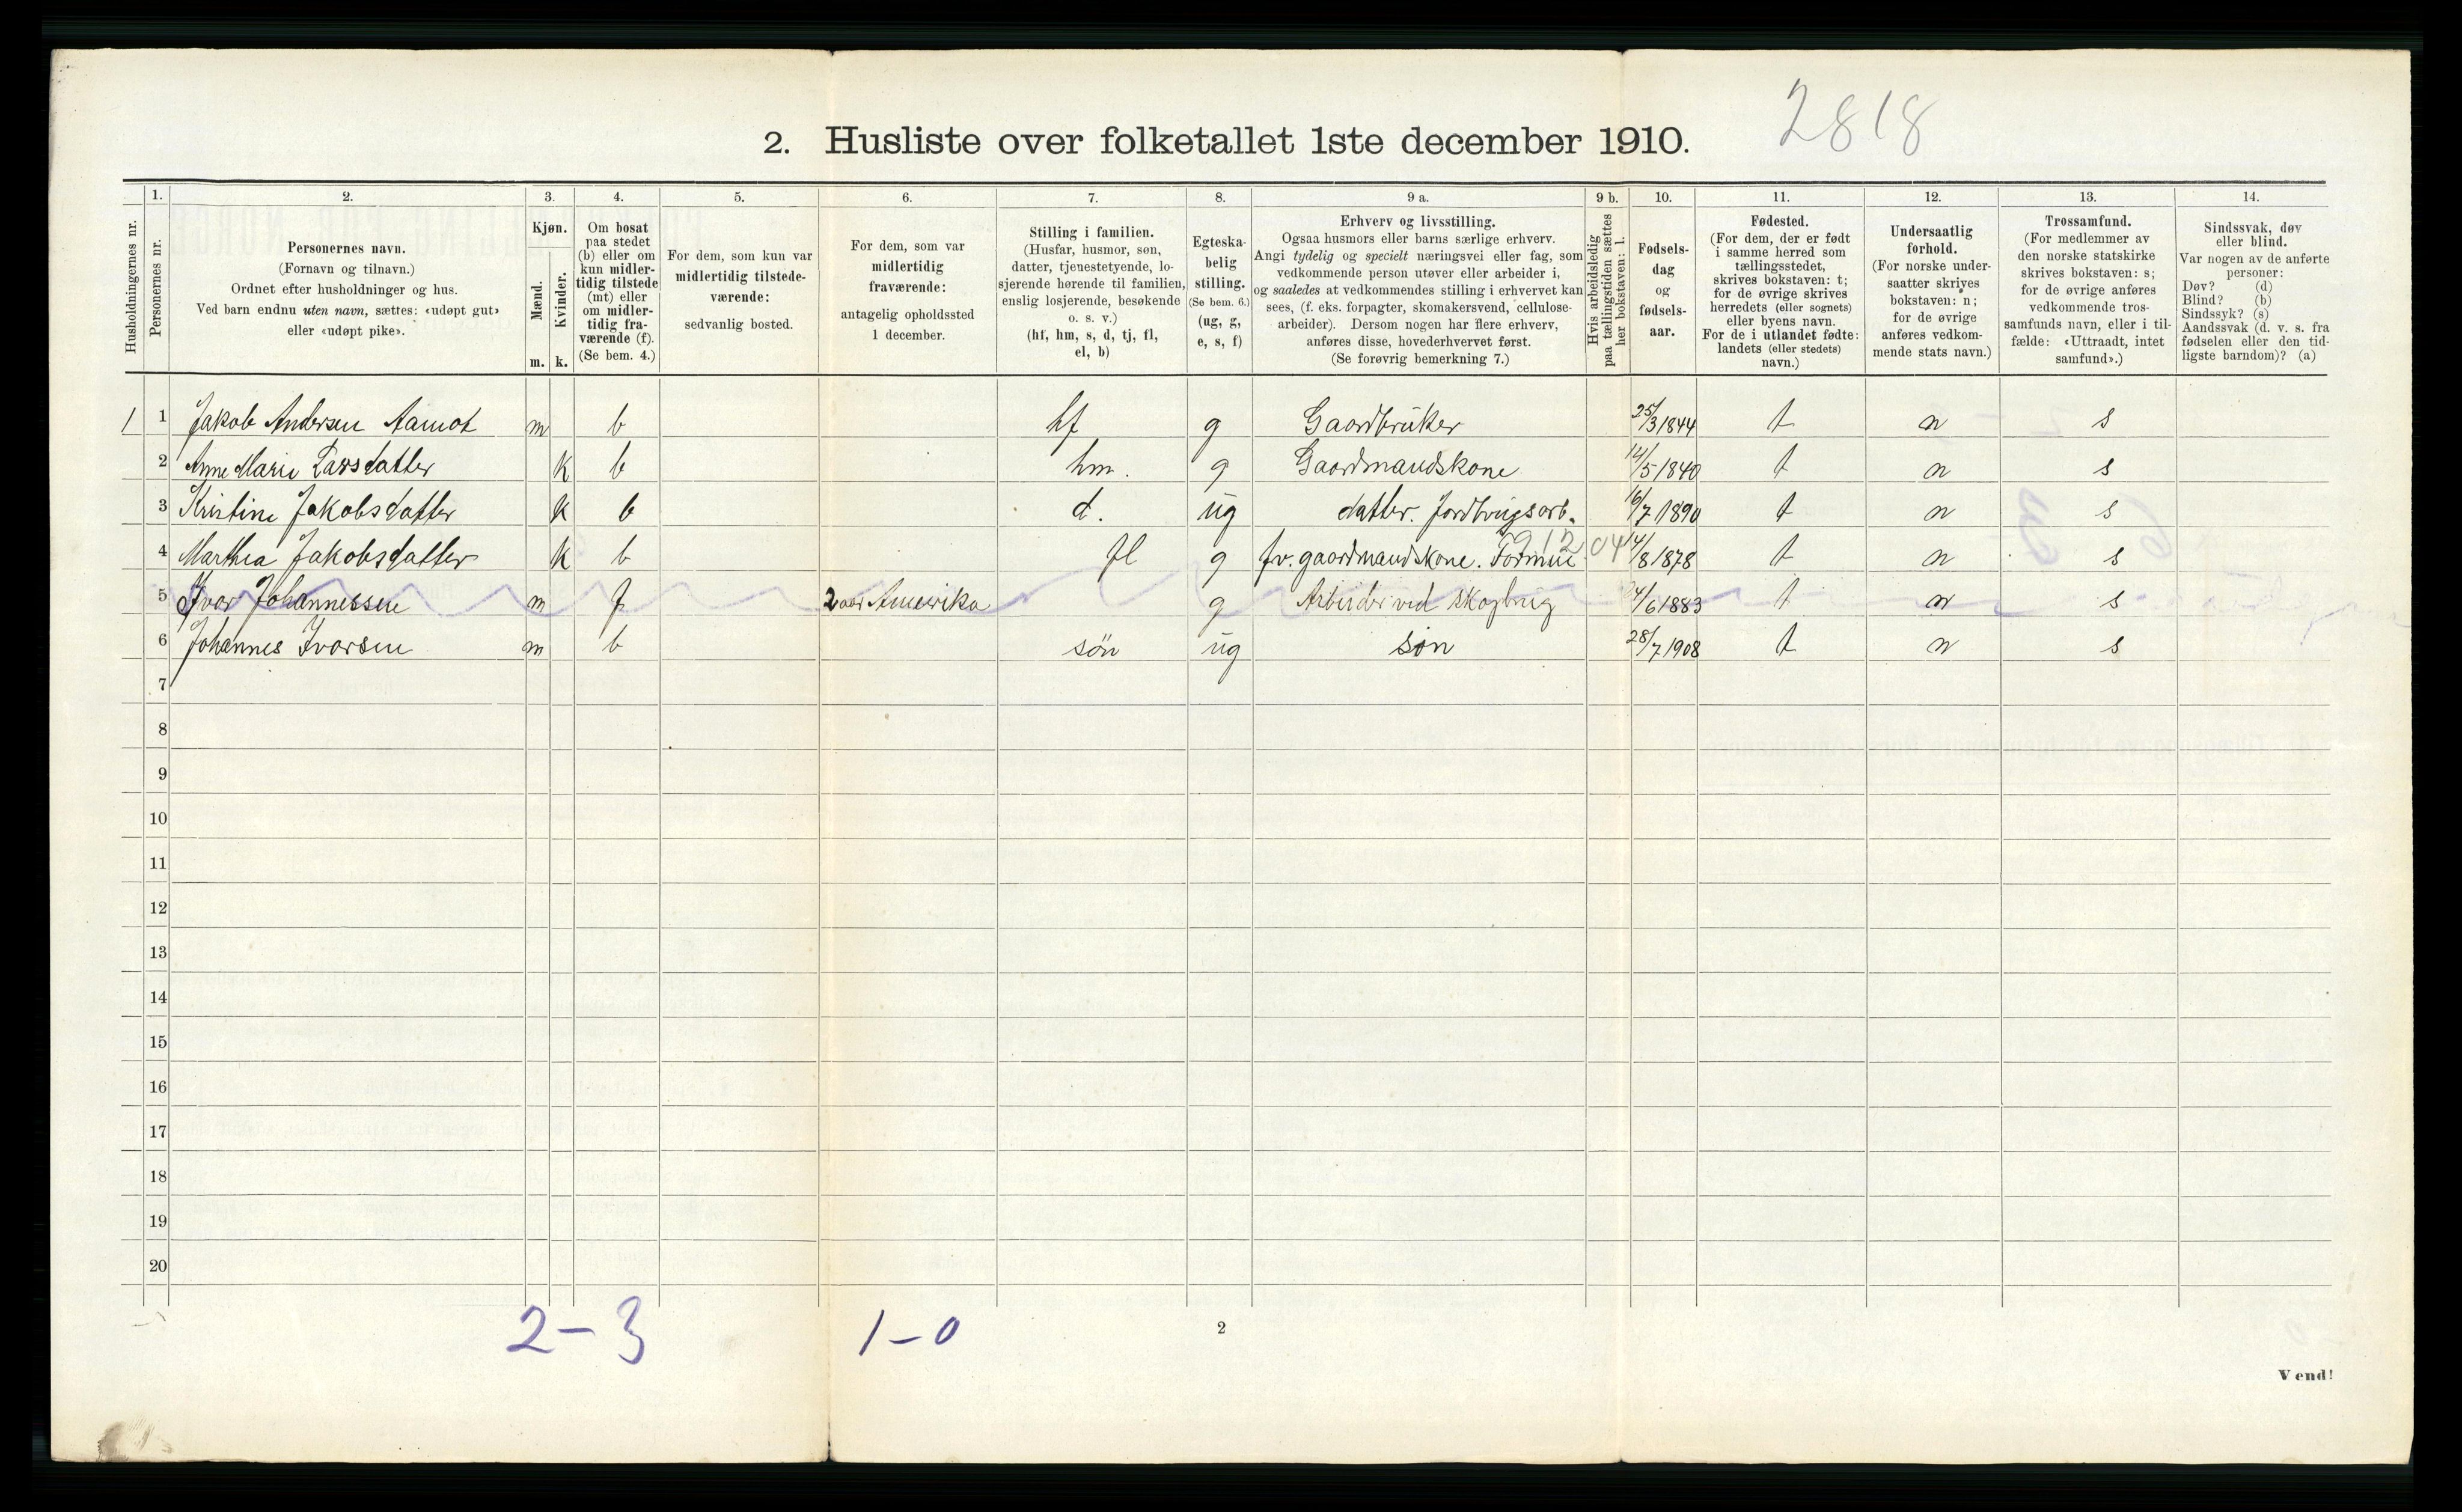 2818
2. Husliste over folketallet 1ste december 1910.
Husholdningernes nr.
1.
Personernes nr.
2.
Personernes navn.
(Fornavn og tilnavn.)
Ordnet efter husholdninger og hus.
Ved barn endnu uten navn, sættes: «udøpt gut»
eller «udøpt pike».
3.
Kjøn.
Mænd.
Kvinder.
m. k.
4.
Om bosat
paa stedet
(b) eller om
kun midler-
tidig tilstede
(mt) eller
om midler-
tidig fra-
værende (f).
(Se bem. 4.)
5.
For dem, som kun var
midlertidig tilstede-
værende:
sedvanlig bosted.
6.
For dem, som var
midlertidig
fraværende:
antagelig opholdssted
1 december.
7.
Stilling i familien.
(Husfar, husmor, søn,
datter, tjenestetyende, lo-
sjerende hørende til familien,
enslig losjerende, besøkende
o. s. v.)
(hf, hm, s, d, tj, fl,
el, b)
8.
Egteska-
belig
stilling.
(Se bem. 6.)
(ug, g,
e, s, f)
9 a.
Erhverv og livsstilling.
Ogsaa husmors eller barns særlige erhverv.
Angi tydelig og specielt næringsvei eller fag, som
vedkommende person utøver eller arbeider i,
og saaledes at vedkommendes stilling i erhvervet kan
sees, (f. eks. forpagter, skomakersvend, cellulose-
arbeider). Dersom nogen har flere erhverv,
anføres disse, hovederhvervet først.
(Se forøvrig bemerkning 7.)
9 b.
Hvis arbeidsledig
paa tællingstiden sættes
her bokstaven: l.
10.
Fødsels-
dag
og
fødsels-
aar.
11.
Fødested.
(For dem, der er født
i samme herred som
tællingsstedet,
skrives bokstaven: t;
for de øvrige skrives
herredets (eller sognets)
eller byens navn.
For de i utlandet fødte:
landets (eller stedets)
navn.)
12.
Undersaatlig
forhold.
(For norske under-
saatter skrives
bokstaven: n;
for de øvrige
anføres vedkom-
mende stats navn.)
13.
Trossamfund.
(For medlemmer av
den norske statskirke
skrives bokstaven: s;
for de øvrige anføres
vedkommende tros-
samfunds navn, eller i til-
fælde: «Uttraadt, intet
samfund».)
14.
Sindssvak, døv
eller blind.
Var nogen av de anførte
personer:
Døv? (d)
Blind? (b)
Sindssyk? (s)
Aandssvak (d. v. s. fra
fødselen eller den tid-
ligste barndom)? (a)
1 1 Jakob Andersen Aamot m b hf g Gaardbrüker 25/3 1844 t n s
2 Anne Marie Larsdatter k b hm. g Gaardmandskone 14/5 1840 t n s
3 Kristine Jakobsdatter k b d. üg datter. Jordbrugsarb. 16/7 1890 t n s
912.04
4 Marthea Jakobsdatter k b fl g fv. gaardmandskone. Formue /8 1878 t n s
5 Ivar Johannessen m f 2 aar Amerika g Arbeider ved skogbrug 4/6 1883 t n s
6 Johannes Ivarsen m b sön üg sön 28/7 1908 t n s
7
8
9
10
11
12
13
14
15
16
17
18
19
20
2-3 1-0
2
Vend!